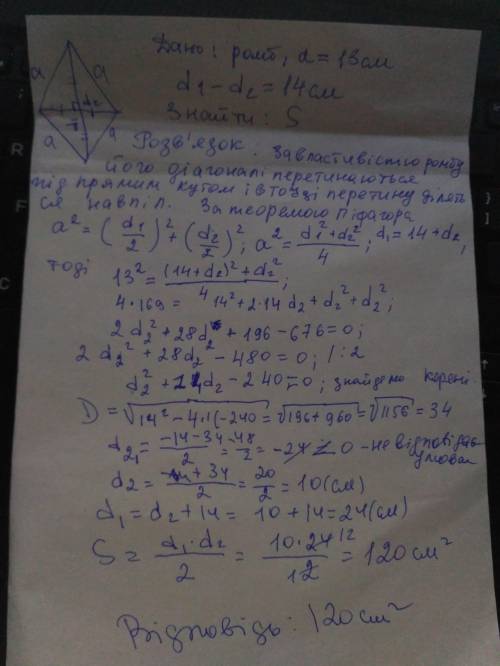 Дано: ромб, a = 13 см
d1 - d2 = 14 см
Знайти: S
a a d2 a a
Розв'язок. За властивістю ромба
його діагоналі перетинаються
під прямим кутом і в точці перетину ділять
ся навпіл. За теоремою Піфагора
a² = (d1/2)² + (d2/2)²; a² = (d1² + d2²)/4; d1 = 14 + d2,
тоді 13² = ((14+d2)² + d2²)/4;
4·169 = 14² + 2·14 d2 + d2² + d2²;
2d2² + 28d2 + 196 - 676 = 0;
2d2² + 28d2 - 480 = 0; /:2
d2² + 14d2 - 240 = 0; знайдемо корені:
D = √14² - 4·1(-240 = √196 + 960 = √1156 = 34
d2₁ = (-14 - 34)/2 = -48/2 = -24 < 0 - не відповідає
умові
d2 = (-14 + 34)/2 = 20/2 = 10 (см)
d1 = d2 + 14 = 10 + 14 = 24 (см)
S = (d1·d2)/2 = (10·24 12)/12 = 120 см²
Відповідь: 120 см²